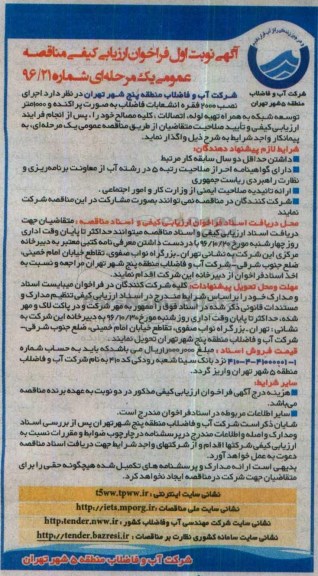 آگهی نوبت اول فراخوان ارزیابی کیفی مناقصه
عمومی یک مرحله ای شماره ۹۶/۲۱
شرکت آب و فاضلاب
منطقه ۵ شهر تهران
شرکت آب و فاضلاب منطقه پنج شهر تهران در نظر دارد اجرای
نصب ۲۰۰۰ فقره انشعابات فاضلاب به صورت پراکنده و
توسعه شبکه به همراه تهیه لوله، اتصالات، کلیه مصالح خود را، پس از انجام فرایند
ارزیابی کیفی و تأیید صلاحیت متقاضیان از طریق مناقصه عمومی یک مرحله ای، به
پیمانکار واجد شرایط به شرح ذیل واگذار نماید.
شرایط لازم پیشنهاد دهندگان:
داشتن حداقل دو سال سابقه کار مرتبط
دارای گواهینامه احراز صلاحیت رتبه ۵ در رشته آب از معاونت برنامه ریزی و
نظارت راهبردی ریاست جمهوری
ارائه تائیدیه صلاحیت ایمنی از وزارت کار و امور اجتماعی.
شرکت کنندگان در مناقصه نمی توانند بصورت مشارکت در این مناقصه شرکت
نمایند
محل دریافت اسناد فراخوان ارزیابی کیفی و اسناد مناقصه: متقاضیان جهت
دریافت اسناد ارزیابی کیفی و اسناد مناقصه میتوانند حداکثر تا پایان وقت اداری
روز چهارشنبه مورخ با در دست داشتن معرفی نامه کتبی معتبر به دبیرخانه
مرکزی این شرکت به نشانی تهران، بزرگراه نواب صفوی، تقاطع خیابان امام خمینی،
ضلع جنوب شرقی- شرکت آب و فاضلاب منطقه پنج شهر تهران مراجعه و نسبت به
اخذ اسناد فراخوان از دبیرخانه این شرکت اقدام نمایند.
مهلت و محل تحویل پیشنهادات: کلیه شرکت کنندگان در فراخوان میبایست اسناد
و مدارک خود را بر اساس شرایط مندرج در اسناد ارزیابی کیفی تنظیم و مدارک و
مستندات قانونی ذکر شده در اسناد فوق را ممهور به مهر شرکت و در پاکت لاک و مهر
شده، حداکثر تا پایان وقت اداری روز شنبه مورخ به دبیرخانه این شرکت به
نشانی: تهران، بزرگراه نواب صفوی، تقاطع خیابان امام خمینی، ضلع جنوب شرقی-
شرکت آب و فاضلاب منطقه پنج شهر تهران تحویل نمایند.
قیمت فروش اسناد: مبلغ ریال می باشد که باید به حساب شماره
نزد بانک سینا شعبه رودکی کد به نام شرکت آب و فاضلاب
منطقه ۵ شهر تهران واریز گردد.
سایر شرایط:
هزینه درج آگهی فراخوان ارزیابی کیفی مذکور در دو نوبت به عهده برنده مناقصه
می باشد.
سایر اطلاعات مربوطه در اسناد فراخوان مندرج است.
شایان ذکر است شرکت آب و فاضلاب منطقه پنج شهر تهران پس از بررسی اسناد
و مدارک واصله و اطلاعات مندرج در پرسشنامه در چارچوب ضوابط و مقررات نسبت به
ارزیابی کیفی شرکتها اقدام و از شرکتهای واجد شرایط جهت دریافت اسناد مناقصه
دعوت به عمل خواهد آورد.
بدیهی است ارائه مدارک و پرسشنامه های تکمیل شده هیچگونه حقی را برای
متقاضیان جهت شرکت در مناقصه ایجاد نخواهد کرد.
نشانی سایت اینترنتی: t5ww.tpww.ir
نشانی سایت ملی مناقصات: http://iets.mporg.ir
نشانی سایت شرکت مهندسی آب وفاضلاب کشور: http:tender.nww.ir
نشانی سایت سامانه کشوری نظارت بر مناقصات: http://tender.bazresi.ir
شرکت آب و فاضلاب منطقه ۵ شهر تهران